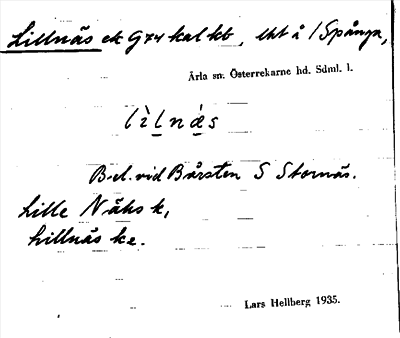 Lillnäs ek G74 kal kb, lht å / Spånga,
Ärla sn. Österrekarne hd. Sdml. l.
lìlnǽs
B-d. vid Bårsten S Stornäs.
Lille Näks k,
Lillnäs k2.
Lars Hellberg 1935.